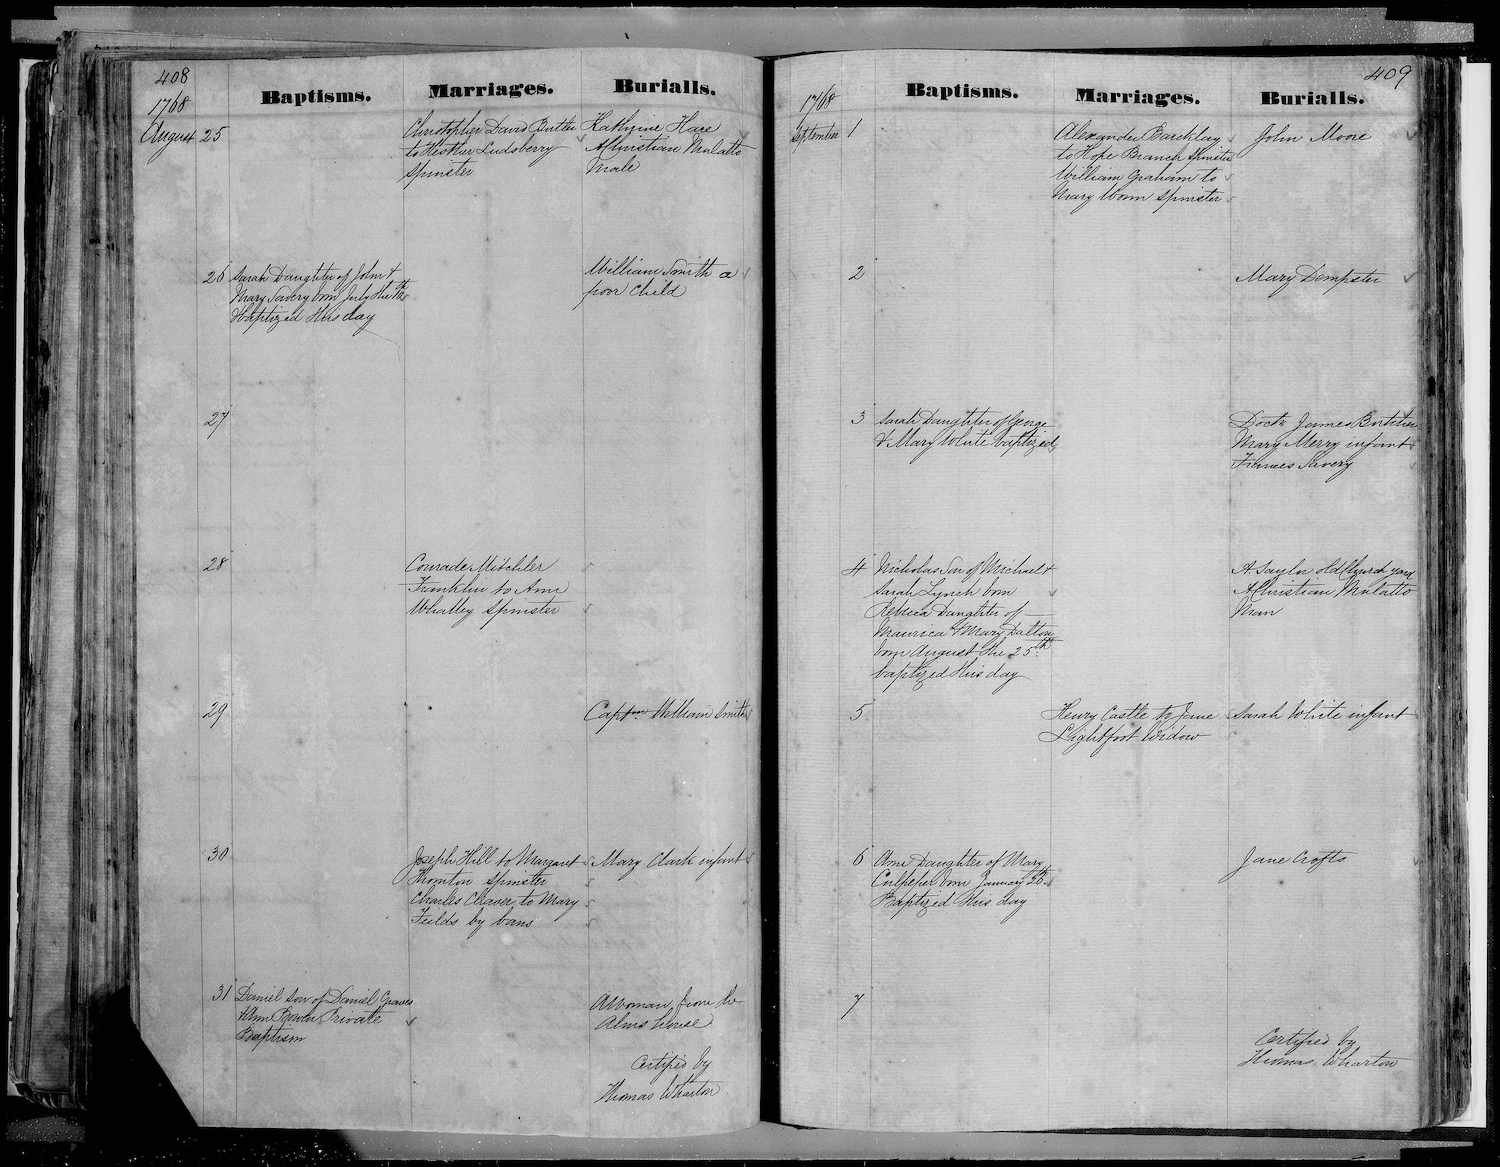 408
1768
Baptisms.
Marriages.
Burialls.
August 25
Christopher David Butler
to Hesther Ludsberry
Spinster
Kathrine Hare
A Christian Mulatto
Male
26
Sarah Daughter of John &
Mary Savery born July the
Baptized this day
William Smith a
poor Child
27
28
Conrade Mitchler
Franklin to Ann
Whalley Spinster
29
Captn. William Smith
30
Joseph Hill to Margaret
Thornton Spinster
Charles to Mary
Fields by bans
Mary Clark infant
31
Daniel Son of Daniel Graves
& Ann Bowen Private
Baptism
A Woman from the
Alms house
Certified by
Thomas Wharton
409
1768
Baptisms.
Marriages.
Burialls.
September 1
Alexander Barckley
to Hope Branch Spinster
William Graham to
Mary Spinster
John Moore
2
Mary Dempster
3
Sarah Daughter of George
& Mary White baptized
Doctr. James
Mary Merry infant
Frances Savery
4
Nicholas Son of Michael &
Sarah Lynch born
Rebeca Daughter of
Maurica & Mary Dalton
born August the 25th
baptized this day
A Saylor old Church yard
A Christian Mulatto
Man
5
Henry Castle to Jane
Lightfoot Widow
Sarah White infant
6
Ann Daughter of Mary
Culpeper born January 26th
Baptized this day
Jane Crofts
7
Certified by
Thomas Wharton